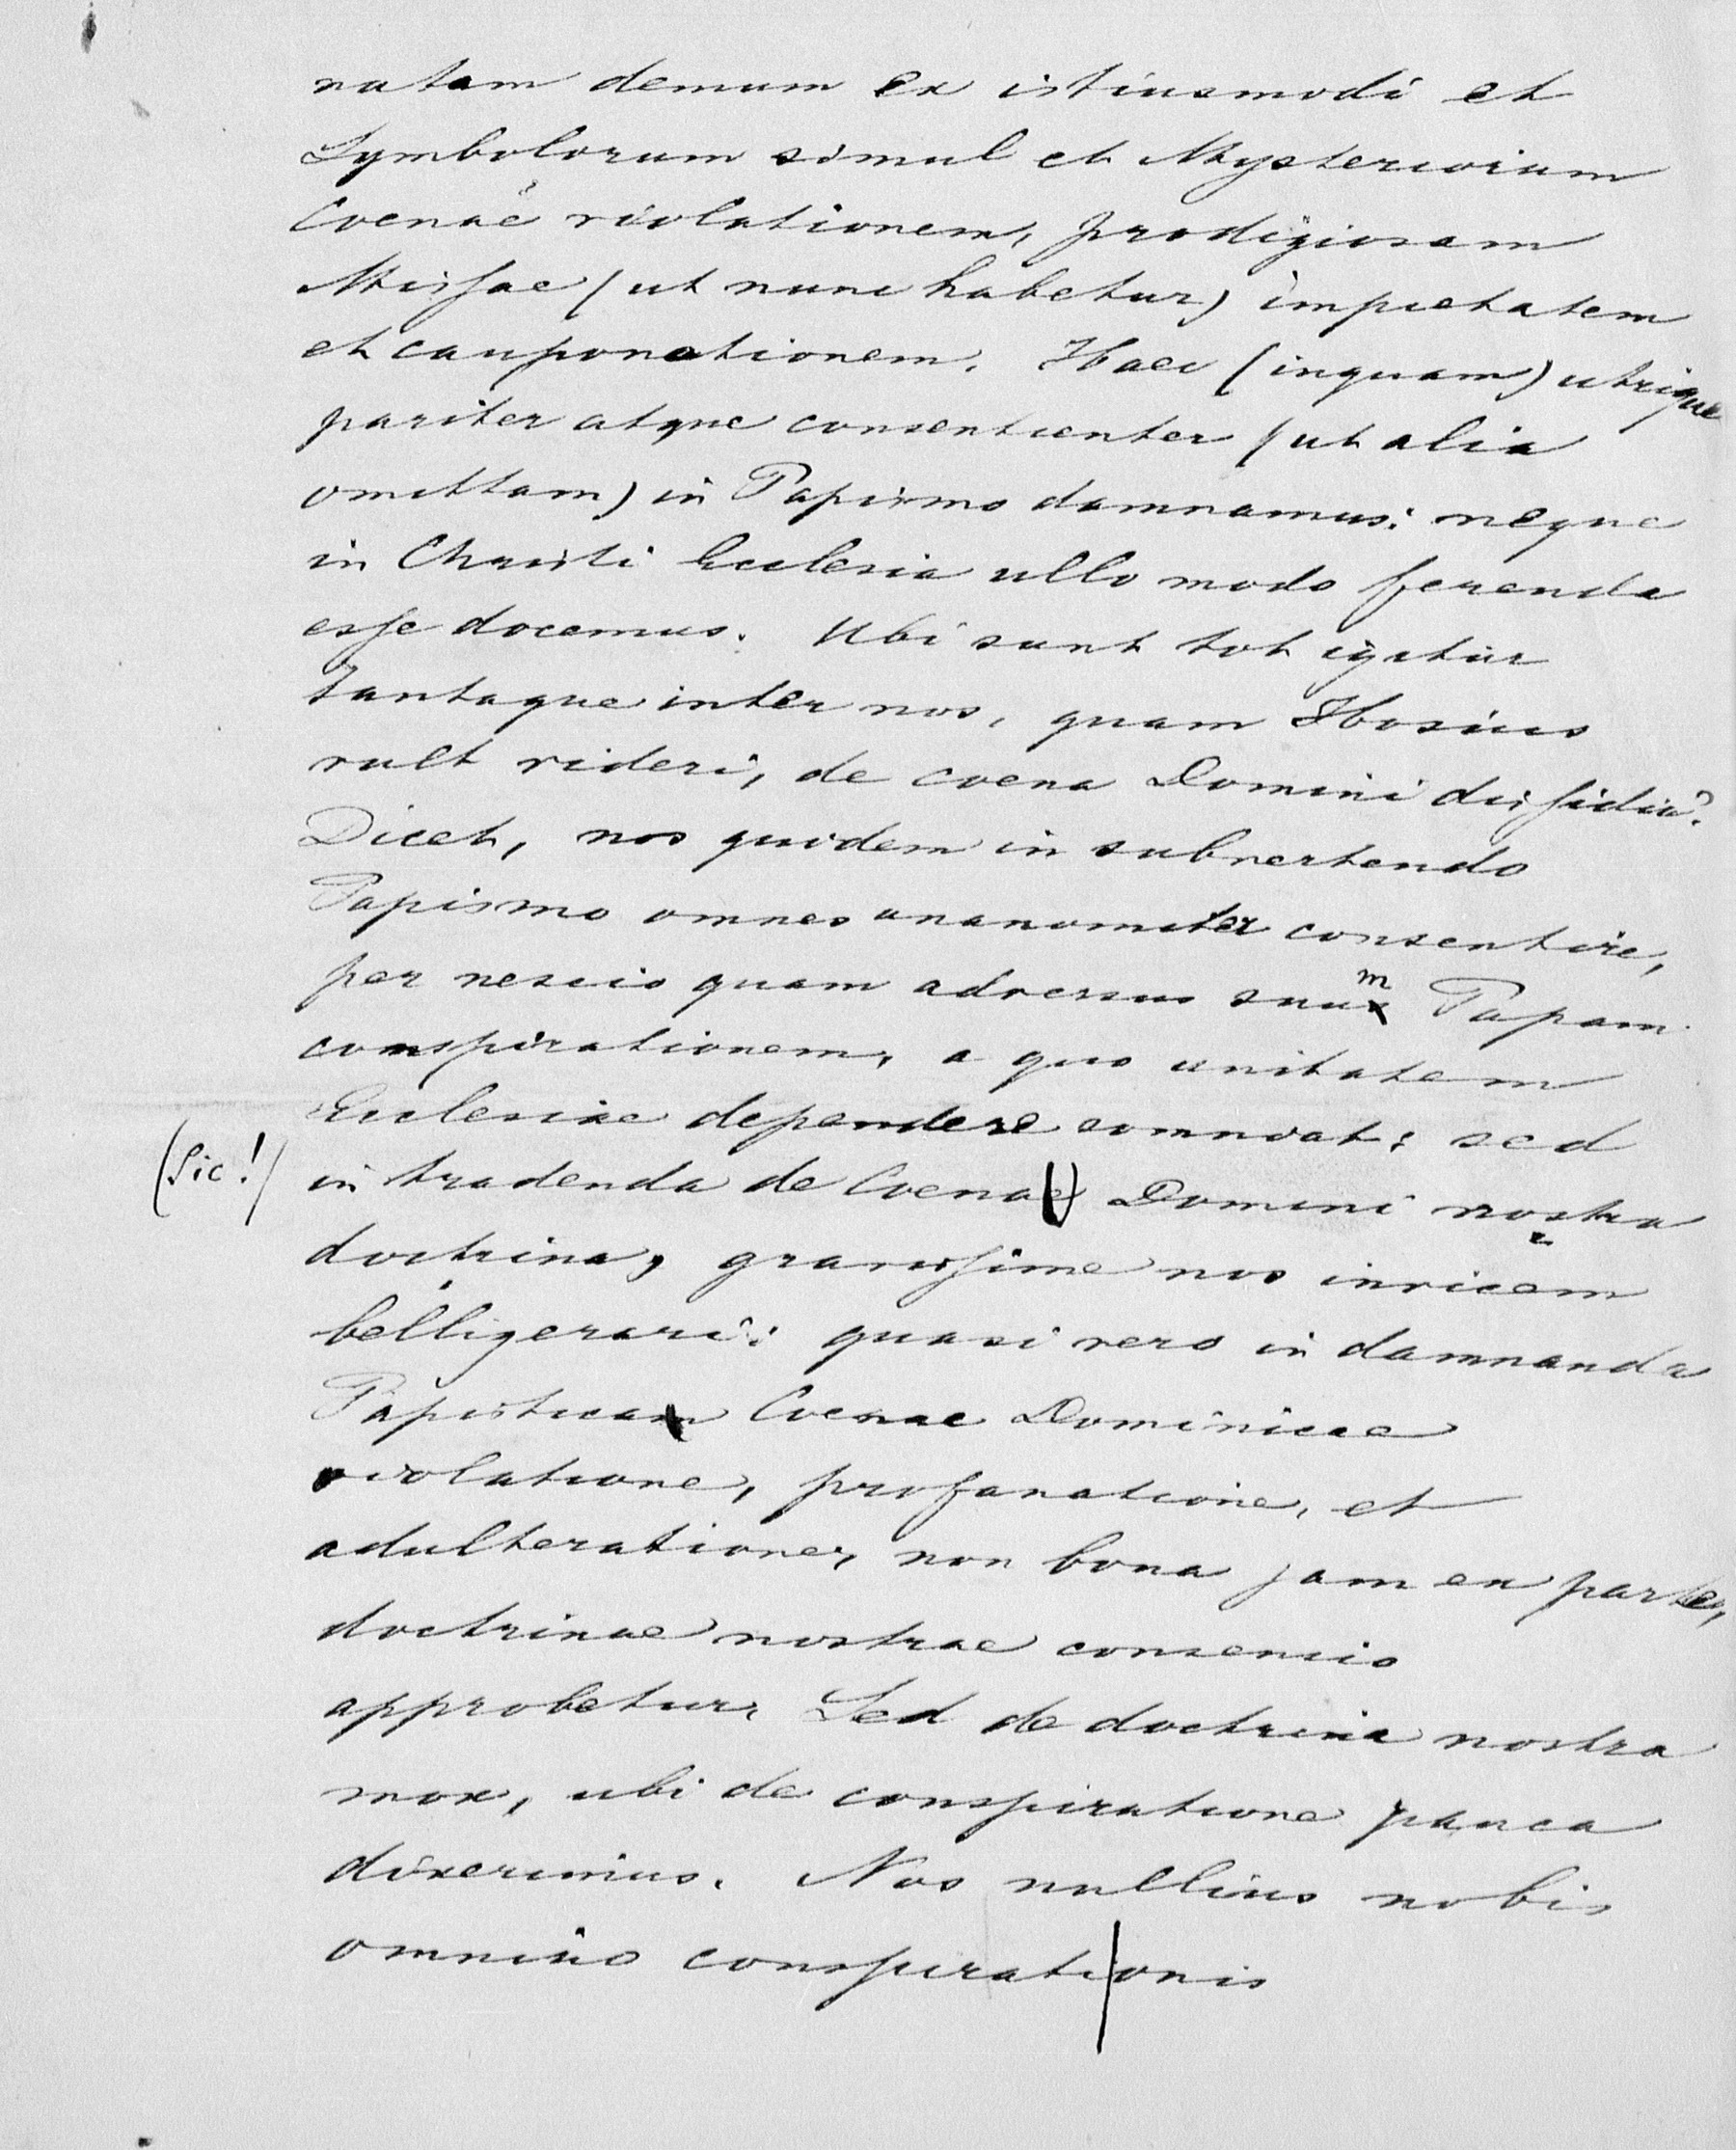 natam demum ex istiusmodi et
Symbolorum simul et Mysteriorum
Coenae violationem, prodigiosam
Missae (ut nunc habetur) impietatem
et cauponationem. Haec (inquam) utrique
pariter atque consentienter (ut alia
omittam) in Papismo damnamus: neque
in Christi Ecclesia ullo modo ferenda
esse docemus. Ubi sunt tot igitur
tantaque inter nos, quam Hosius
vult videri, de coena Domini dissidia?
Dicet, nos quidem in subvertendo
Papismo omnes unanomiter consentire,
per nescio quam adversus suum Papam
conspirationem, a quo unitatem
Ecclesiae dependere somnoat: sed
(Sic!) in tradenda de Coena Domini nostra
doctrina, gravissime nos invicem
belligerari: quasi vero in damnanda
Papistica Coenae Dominicae
violatione, profanatione, et
adulteratione, non bona jam ex parte,
doctrinae nostrae consensio
approbetur. Sed de doctrina nostra
mox, ubi de conspiratione pauca
dixerimus. Nos nullius nobis
omnino conspirationis